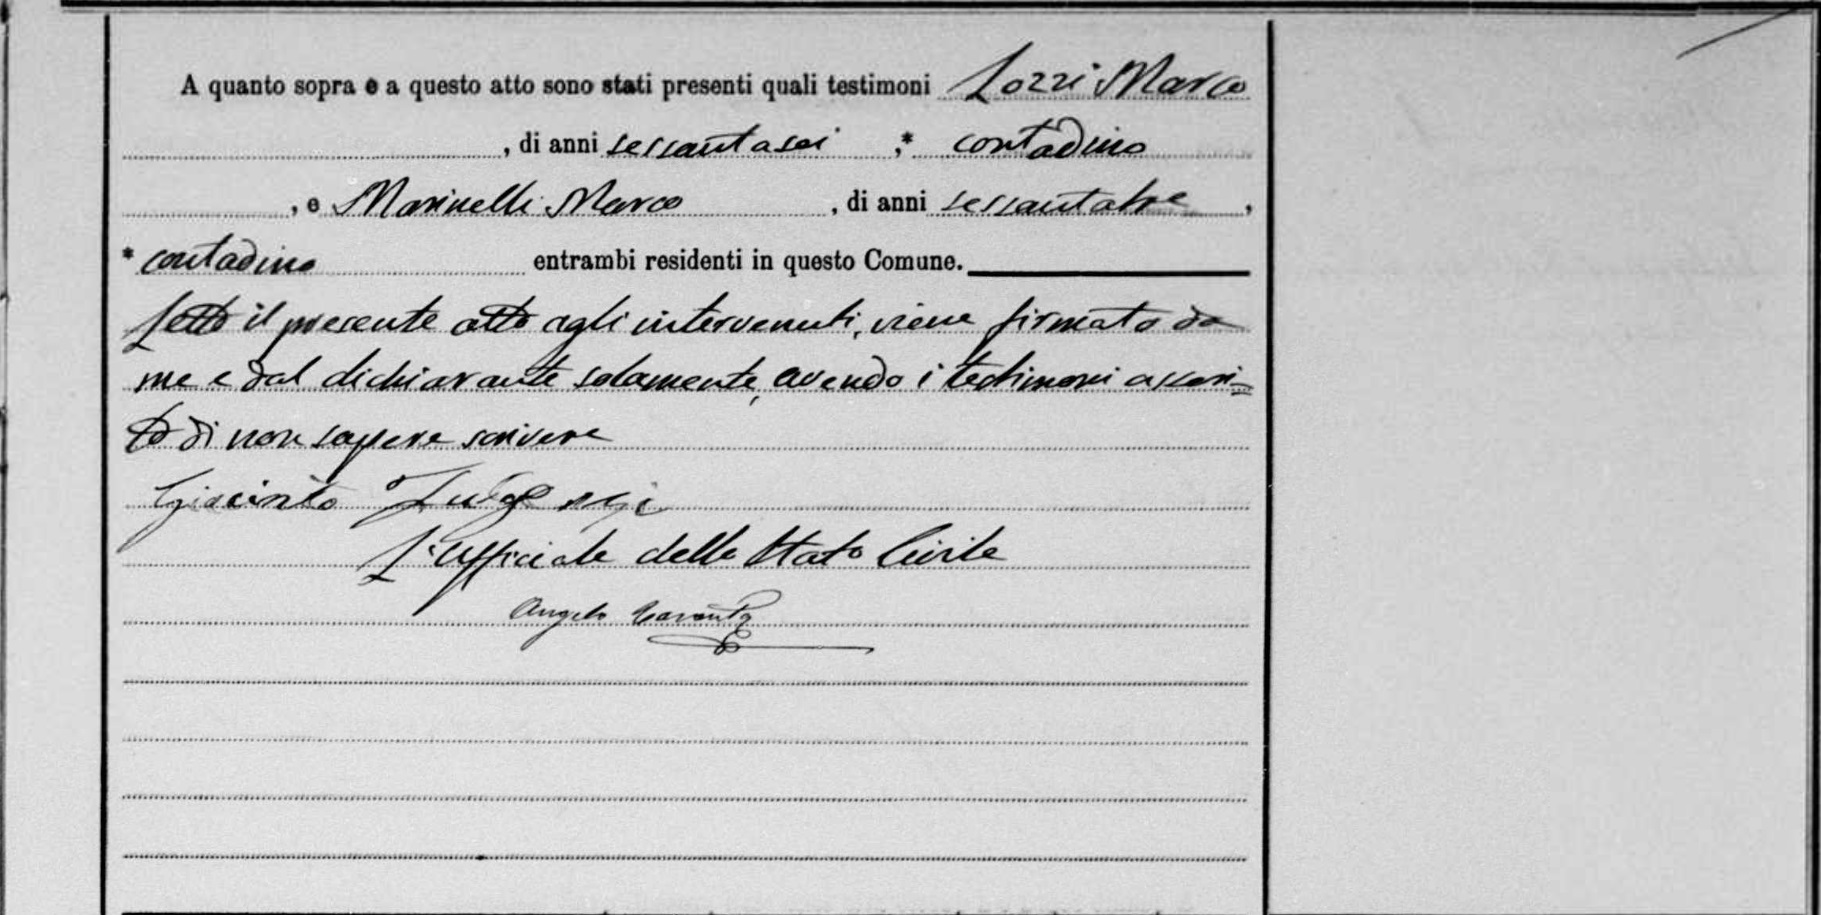 A quanto sopra e a questo atto sono stati presenti quali testimoni Lozzi Marco
, di anni sessantasei ,* contadino
, e Marinelli Marco , di anni sessantatre ,
* contadino entrambi residenti in questo Comune.
Letto il presente atto agli intervenuti, viene firmato da
me e dal dichiarante solamente, avendo i testimoni asseri=
to di non sapere scrivere
Giacinto
L'Ufficiale dello Stato Civile
Angelo